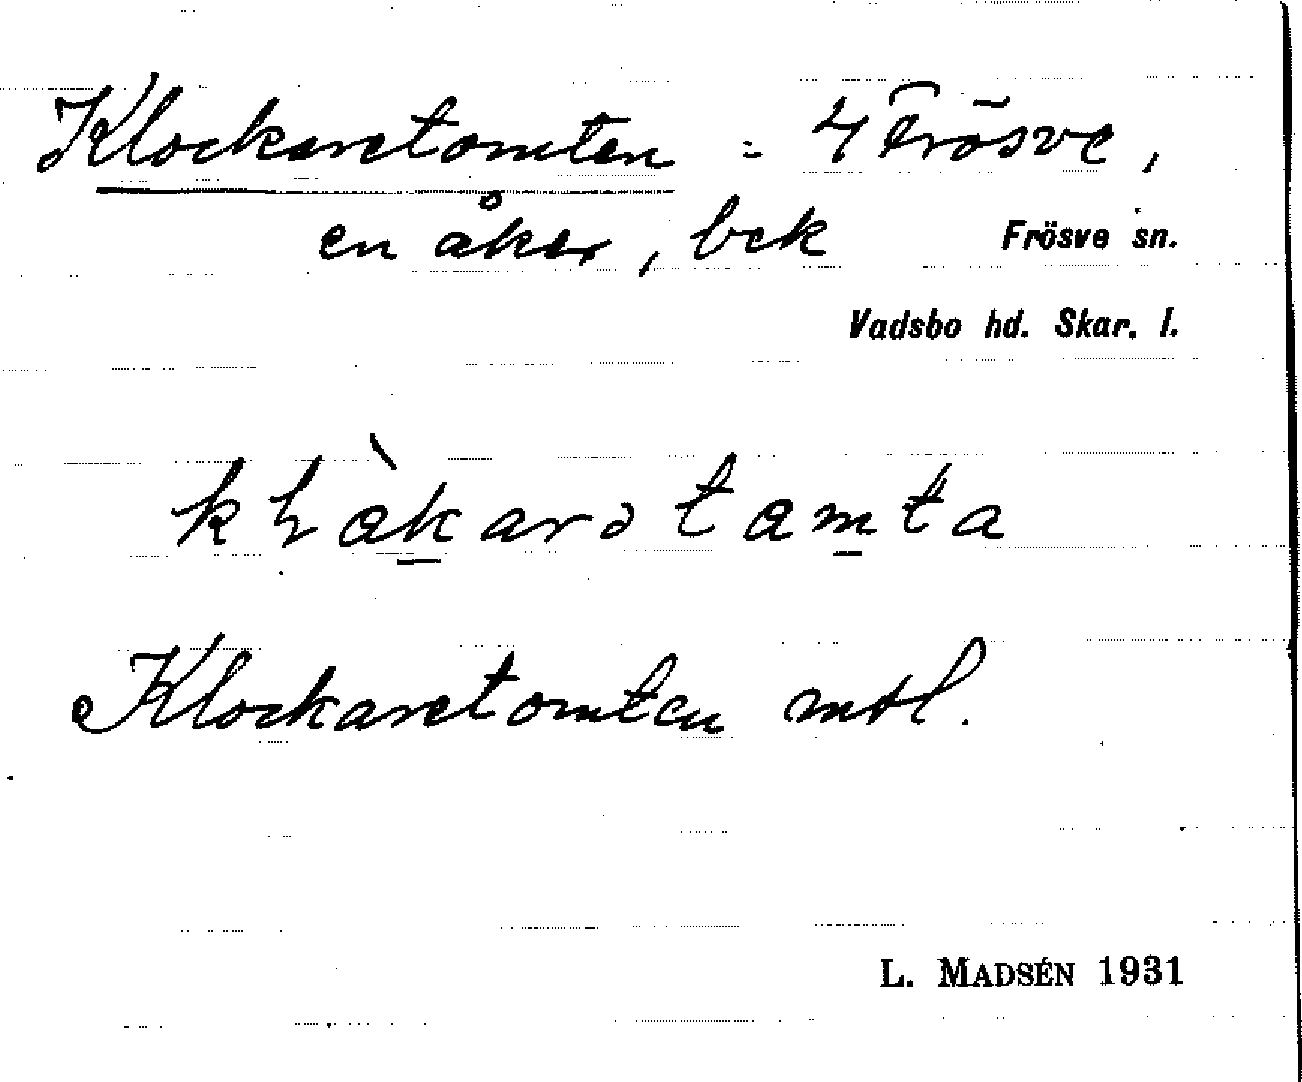 Klockaretomten = 4 Frösve,
en åker, bek Frösve sn.
Vadsbo hd. Skar. l.
Klockaretomten mtl.
L. MADSÉN 1931